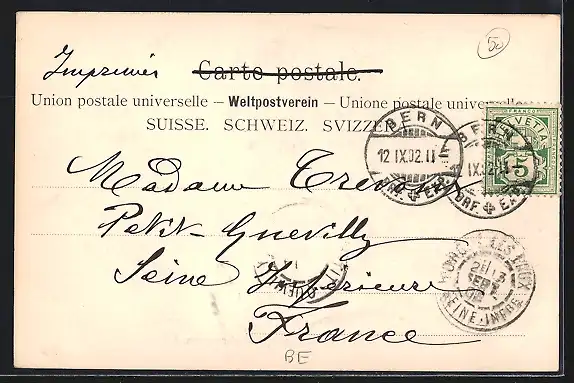 Imprimés
Carte postale.
50
Union postale universelle – Weltpostverein – Unione postale universelle
SUISSE. SCHWEIZ. SVIZZERA
BERN
12 IX.02. II
BRF. EXP.
BERN
IX.02. II
BRF EXP.
FRANCO
HELVETIA
5
Madame
Petit-Quevilly
Seine Inférieure
France
QUEVILLY
LES-EAUX
SEPT
SEINE-INFRE
BE